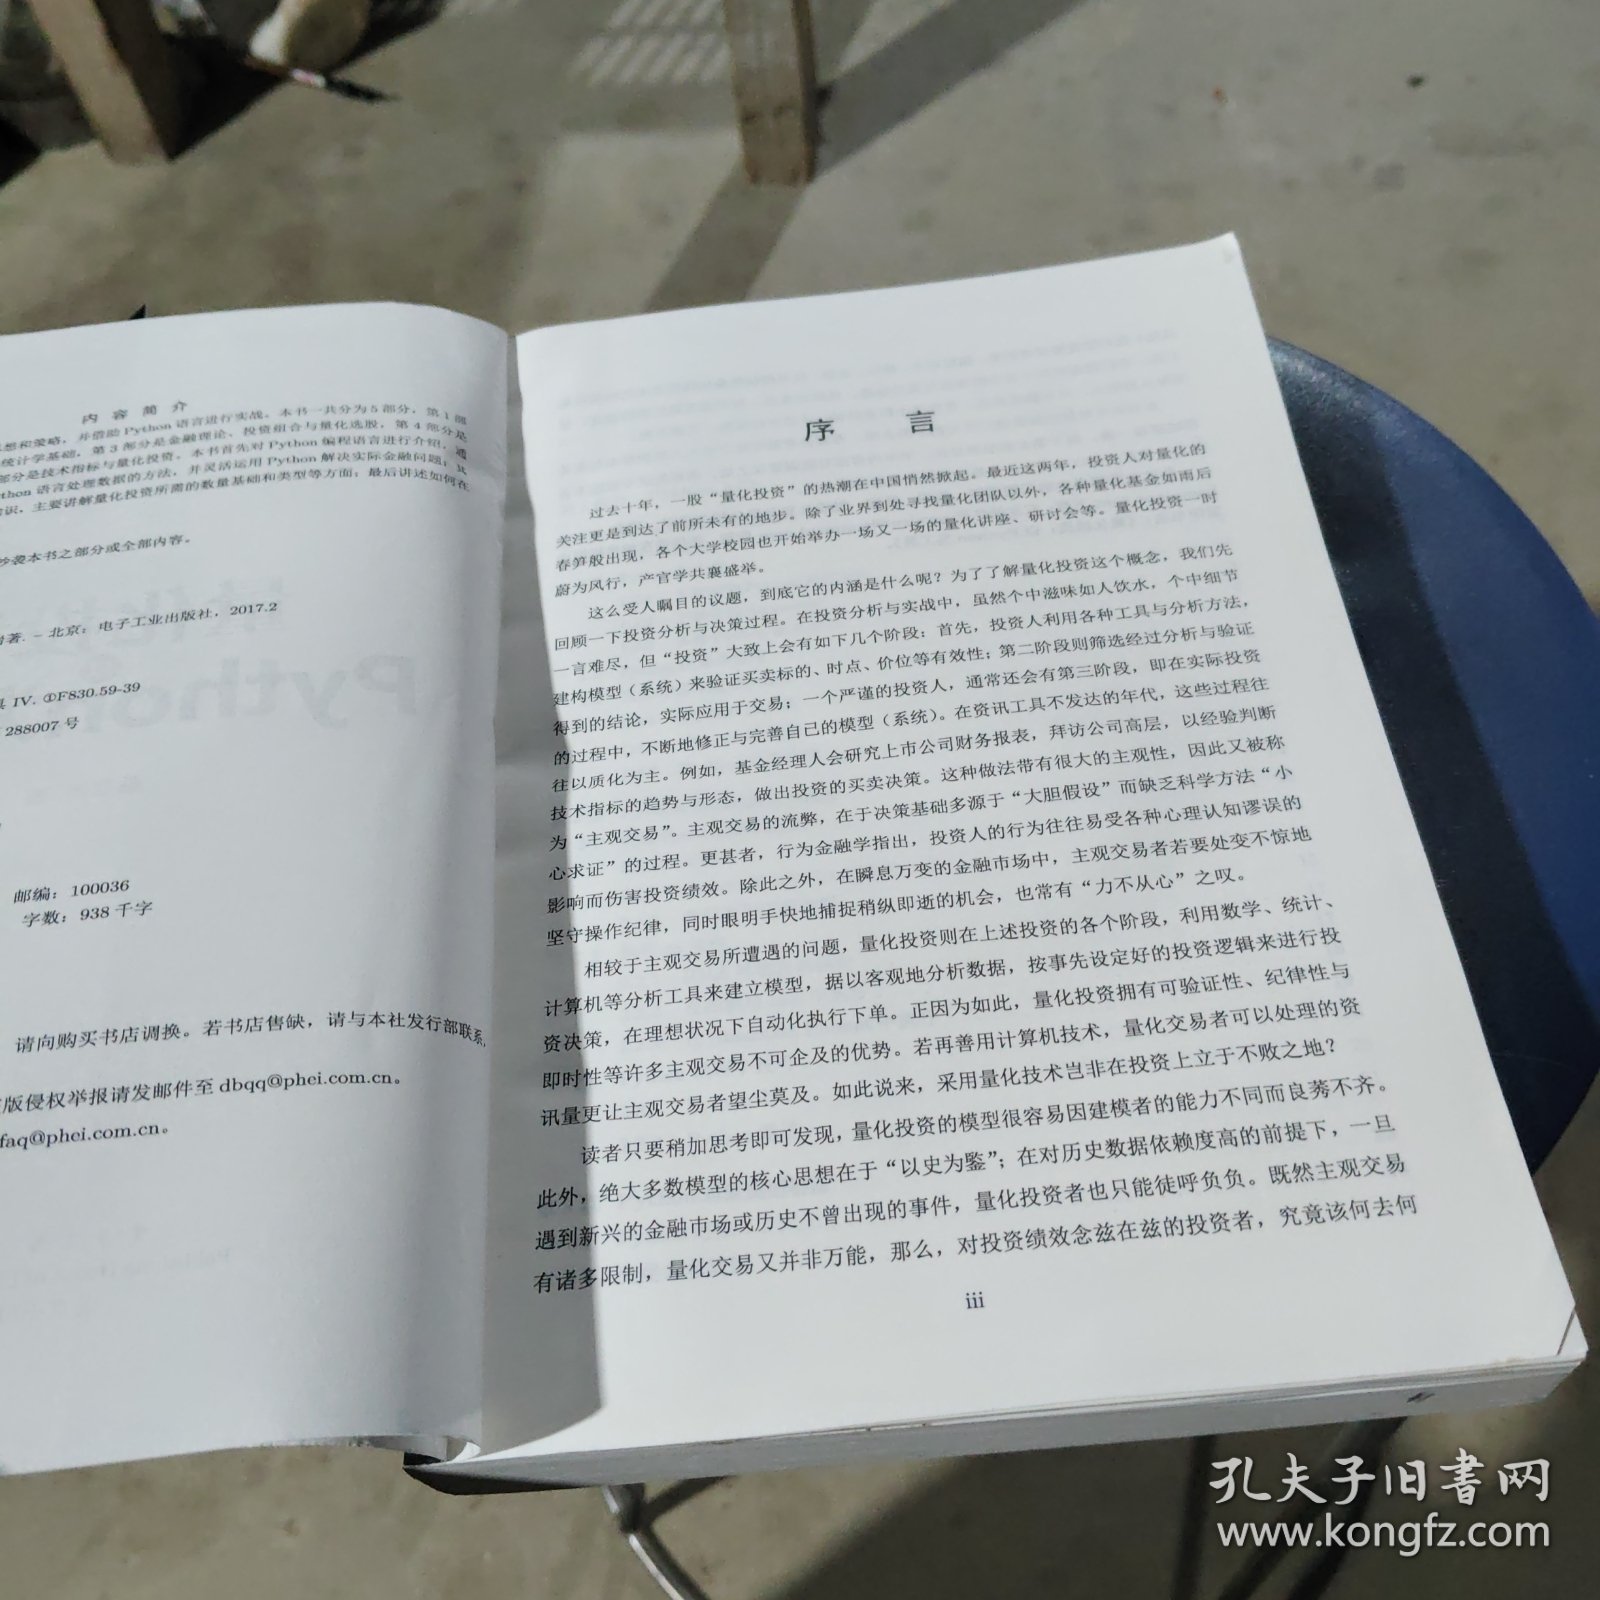 内 容 简 介
想和策略，并借助Python语言进行实战。本书一共分为5部分，第1部
统计学基础，第3部分是金融理论、投资组合与量化选股，第4部分是
部分是技术指标与量化投资。本书首先对Python编程语言进行介绍，通
thon语言处理数据的方法，并灵活运用Python解决实际金融问题；其
识，主要讲解量化投资所需的数量基础和类型等方面；最后讲述如何在
抄袭本书之部分或全部内容。
著. －北京：电子工业出版社，2017.2
IV. ①F830.59-39
288007 号
邮编：100036
字数：938 千字
请向购买书店调换。若书店售缺，请与本社发行部联系，
版侵权举报请发邮件至dbqq@phei.com.cn。
faq@phei.com.cn。
序 言
过去十年，一股“量化投资”的热潮在中国悄然掀起。最近这两年，投资人对量化的
关注更是到达了前所未有的地步。除了业界到处寻找量化团队以外，各种量化基金如雨后
春笋般出现，各个大学校园也开始举办一场又一场的量化讲座、研讨会等。量化投资一时
蔚为风行，产官学共襄盛举。
这么受人瞩目的议题，到底它的内涵是什么呢？为了了解量化投资这个概念，我们先
回顾一下投资分析与决策过程。在投资分析与实战中，虽然个中滋味如人饮水，个中细节
一言难尽，但“投资”大致上会有如下几个阶段：首先，投资人利用各种工具与分析方法，
建构模型（系统）来验证买卖标的、时点、价位等有效性；第二阶段则筛选经过分析与验证
得到的结论，实际应用于交易；一个严谨的投资人，通常还会有第三阶段，即在实际投资
的过程中，不断地修正与完善自己的模型（系统）。在资讯工具不发达的年代，这些过程往
往以质化为主。例如，基金经理人会研究上市公司财务报表，拜访公司高层，以经验判断
技术指标的趋势与形态，做出投资的买卖决策。这种做法带有很大的主观性，因此又被称
为“主观交易”。主观交易的流弊，在于决策基础多源于“大胆假设”而缺乏科学方法“小
心求证”的过程。更甚者，行为金融学指出，投资人的行为往往易受各种心理认知谬误的
影响而伤害投资绩效。除此之外，在瞬息万变的金融市场中，主观交易者若要处变不惊地
坚守操作纪律，同时眼明手快地捕捉稍纵即逝的机会，也常有“力不从心”之叹。
相较于主观交易所遭遇的问题，量化投资则在上述投资的各个阶段，利用数学、统计、
计算机等分析工具来建立模型，据以客观地分析数据，按事先设定好的投资逻辑来进行投
资决策，在理想状况下自动化执行下单。正因为如此，量化投资拥有可验证性、纪律性与
即时性等许多主观交易不可企及的优势。若再善用计算机技术，量化交易者可以处理的资
讯量更让主观交易者望尘莫及。如此说来，采用量化技术岂非在投资上立于不败之地？
读者只要稍加思考即可发现，量化投资的模型很容易因建模者的能力不同而良莠不齐。
此外，绝大多数模型的核心思想在于“以史为鉴”；在对历史数据依赖度高的前提下，一旦
遇到新兴的金融市场或历史不曾出现的事件，量化投资者也只能徒呼负负。既然主观交易
有诸多限制，量化交易又并非万能，那么，对投资绩效念兹在兹的投资者，究竟该何去何
iii
孔夫子旧书网
www.kongfz.com